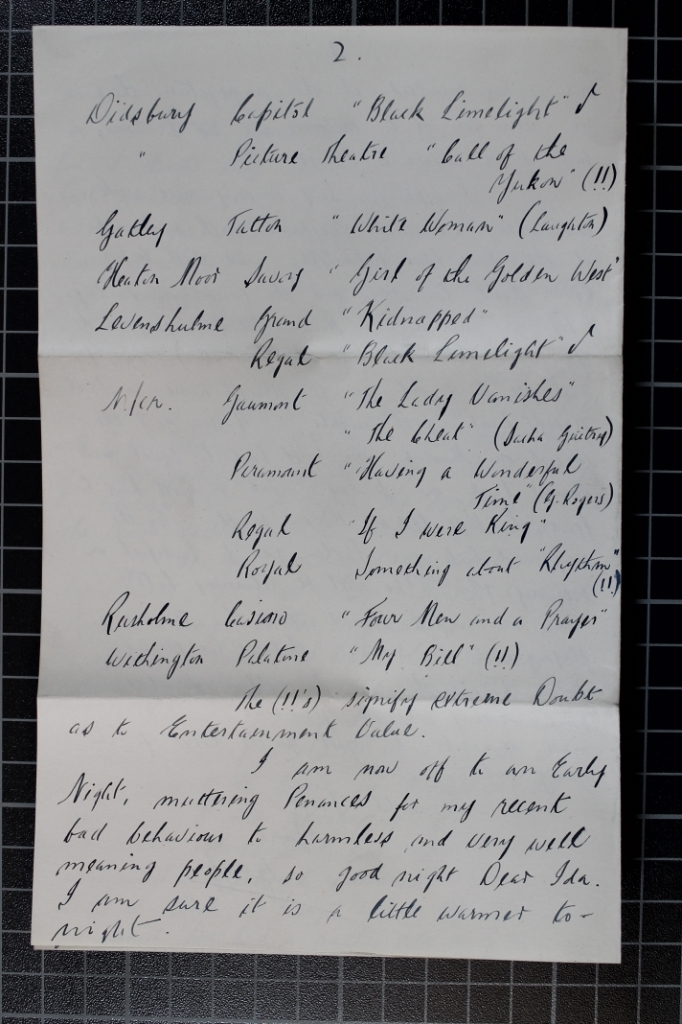 2.
Didsbury Capitol "Black Limelight" ♪
" Picture Theatre "Call of the
Yukon" (!!)
Gatley Tatton "White Woman" (Laughton)
Heaton Moor Savoy "Girl of the Golden West"
Levenshulme Grand "Kidnapped"
Regal "Black Limelight" ♪
M/cr. Gaumont "The Lady Vanishes"
"The Cheat" (Sacha Guitry)
Paramount "Having a Wonderful
Time" (G. Rogers)
Regal "If I were King"
Royal Something about "Rhythm"
(!!)
Rusholme Casino "Four Men and a Prayer"
Withington Palatine "My Bill" (!!)
The (!!'s) signify extreme Doubt
as to Entertainment Value.
I am now off to an Early
Night, muttering Penances for my recent
bad behaviour to harmless and very well
meaning people, so good night Dear Ida.
I am sure it is a little warmer to-
night.